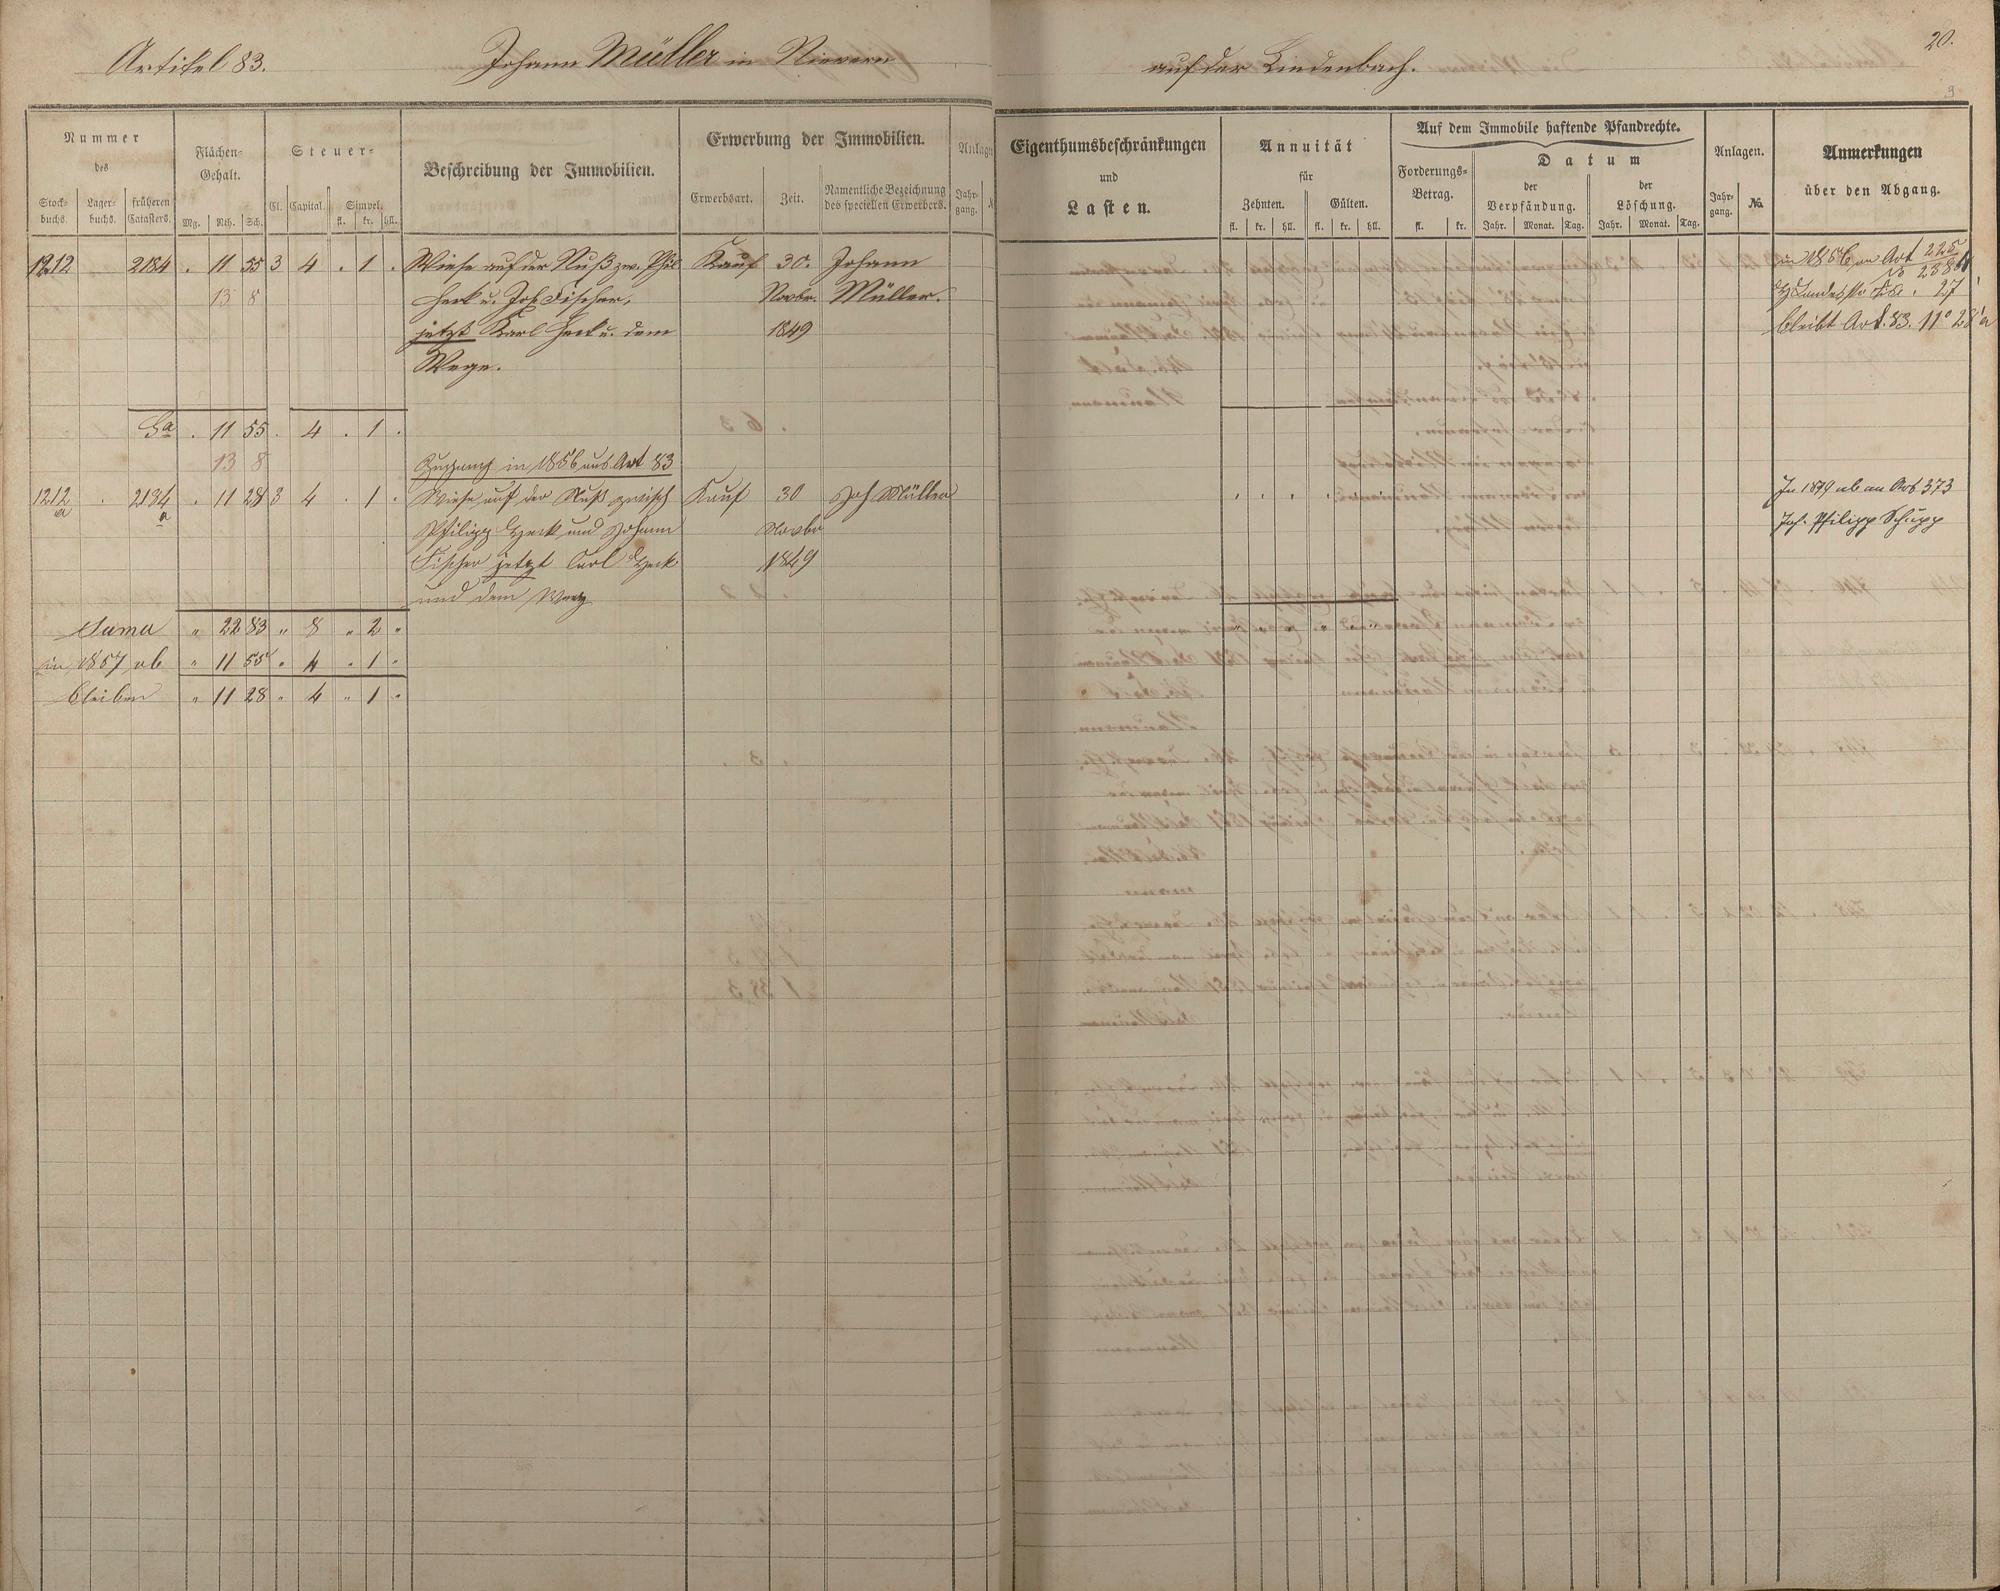 20.
Artikel 83. Johann Müller in Nievern auf der Lindenbach.
3
Nummer des
Stockbuchs. Lagerbuchs. früheren Catasters.
Flächen-Gehalt.
Mg. Rth. Sch.
Steuer-
Cl. Capital. Simpel.
fl. kr. hll.
Beschreibung der Immobilien.
Erwerbung der Immobilien.
Erwerbsart. Zeit. Namentliche Bezeichnung des speciellen Erwerbers.
Anlagen
Jahrgang.
Eigenthumsbeschränkungen und Lasten.
Annuität für
Zehnten. Gülten.
fl. kr. hll. fl. kr. hll.
Auf dem Immobile haftende Pfandrechte.
Forderungs-Betrag.
fl. kr.
Datum
der Verpfändung. der Löschung.
Jahr. Monat. Tag. Jahr. Monat. Tag.
Anlagen.
Jahrgang. No.
Anmerkungen über den Abgang.
1212 2184 . 11 55 3 4 . 1 . Wiese auf der Nuß zw. Phil. Kauf 30. Johann
13 8 Heck u. Joh. Fischer, Novbr. Müller.
jetzt Karl Heck u. dem 1849
Wege.
in 1856 an Art 225
27
bleibt Art. 83. 11° 28'
Sa . 11 55 . 4 . 1 .
13 8 Zugang in 1856 aus Art 83
1212 a . 2184 a . 11 28 3 4 . 1 . Wiese auf der Nuß zwisch Kauf 30 Joh Müller
Philipp Heck und Johann Novbr
Fischer jetzt Carl Heck 1849
und dem Weg
In 1879 ab an Art 373
Joh. Philipp Schupp
Suma " 22 83 " 8 " 2 "
in 1857 ab " 11 55 " 4 " 1 "
bleiben " 11 28 " 4 " 1 "